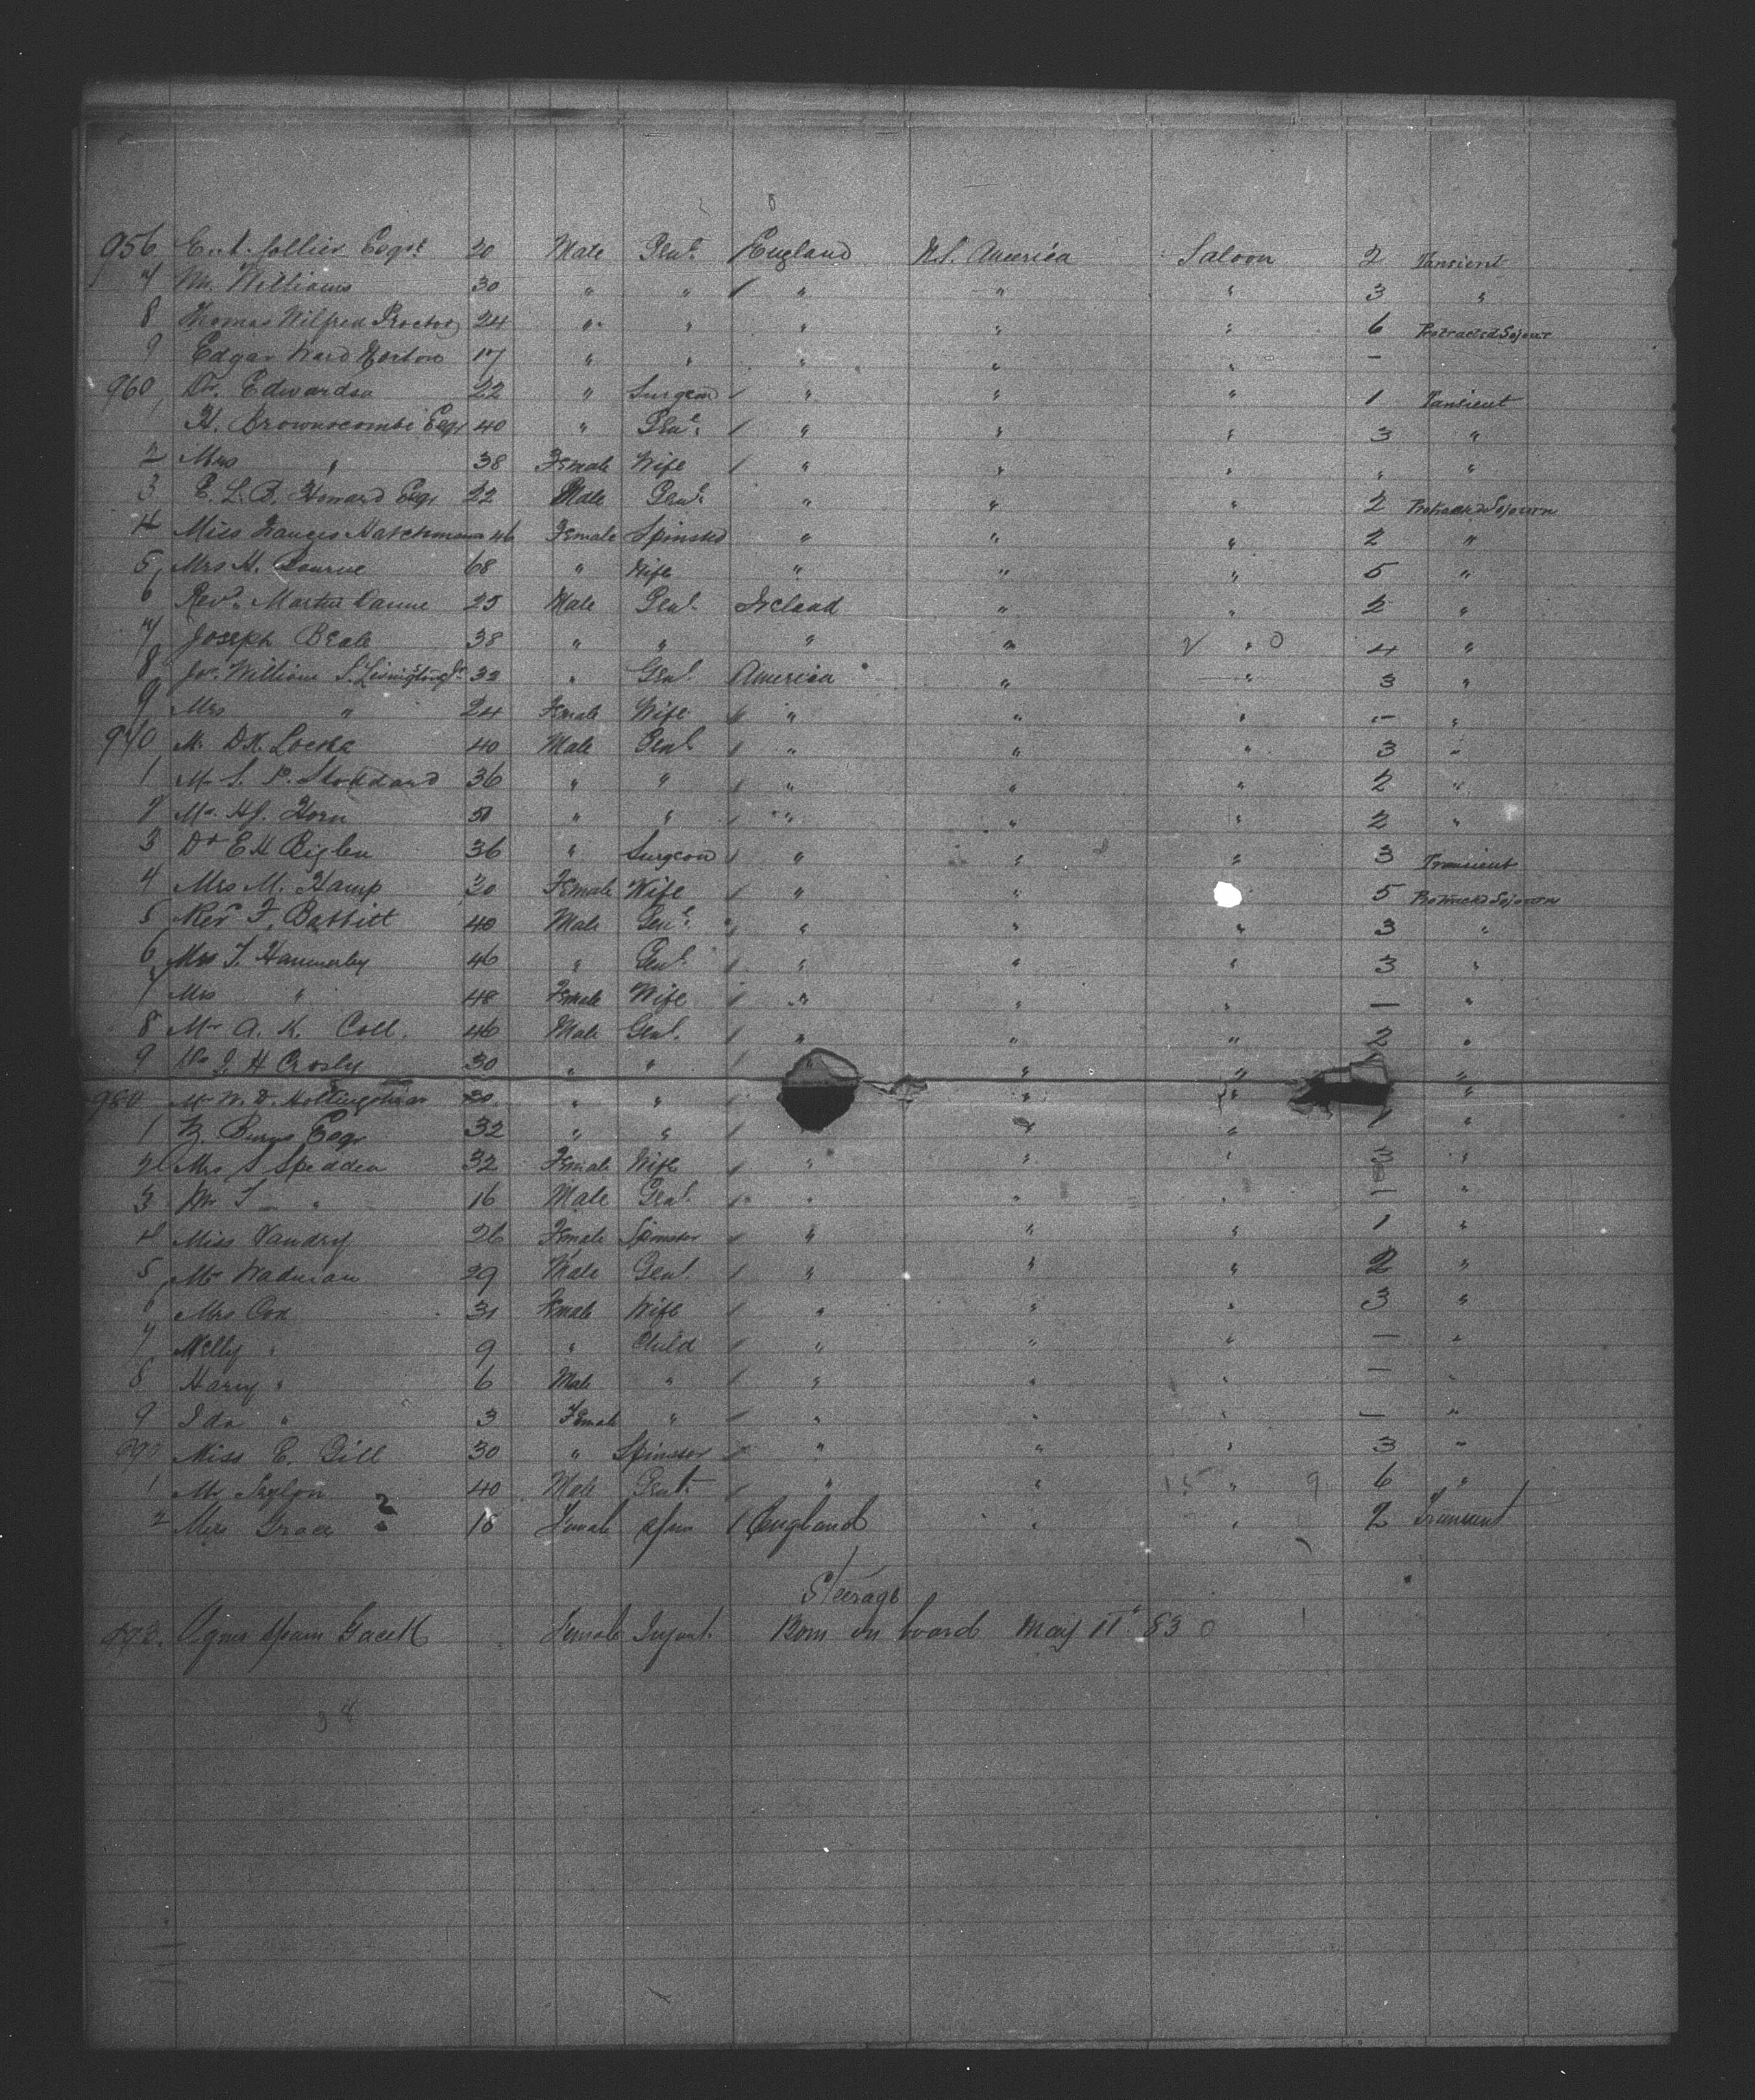 956 Collier Esqre 20 Male Gent. England U.S. America Saloon 2 Transient
7 M. Williams 30 " " " " " 3 "
8 Thomas Wilfred Proctor 24 " " " " " 6 Protracted Sojour
9 Edgar Ward Horton 17 " " " " " —
960 Dr. Edwards 22 " Surgeon " " " 1 Transient
1 H. Brownscombe Esqr 40 " Gent. " " " 3 "
2 Mrs " 38 Female Wife " " " " "
3 E. L. B. Howard Esqr 22 Male Gent. " " " 2 Protracted Sojourn
4 Miss Frances Hatchman 46 Female Spinster " " " 2 "
5 Mrs H. 68 " Wife " " " 5 "
6 Revd. Martin Dunne 25 Male Gent. Ireland " " 2 "
7 Joseph Beale 38 " " " " " 4 "
8 William 32 " Gent. America " " 3 "
9 Mrs " 24 Female Wife " " " — "
970 M. D.R. Locke 40 Male Gent " " " 3 "
1 Mr S. P. Stoddard 36 " " " " " 2 "
2 Mr. Horn " " " " " 2 "
3 Dr E H 36 " Surgeon " " " 3 Transient
4 Mrs M. Hamp 30 Female Wife " " 5 Protracted Sojourn
5 Rev F. Babbitt 40 Male Gent. " " " 3 "
6 T. Hammerley 46 " Gent. " " " 3 "
7 Mrs " 48 Female Wife " " " — "
8 Mr A. K. Coll. 46 Male Gent. " " " 2 "
9 H Crosby 30 " " " " " "
980 Mr W. D. " " " " "
1 Burns Esqr 32 " " " " 1 "
2 Mrs S Spedden 32 Female Wife " " " 3 "
3 Mr T — " 16 Male Gent. " " " — "
4 Miss Vandry 26 Female Spinster " " " 1 "
5 Mr Wadman 29 Male Gent. " " " 2 "
6 Mrs Cox 31 Female Wife " " " 3 "
7 Nelly " 9 " Child " " " — "
8 Harry " 6 Male " " " " — "
9 Ida " 3 Female " " " " — "
990 Miss E. Gill 30 " Spinster " " " 3 "
1 Mr 40 Male Gent. " " " 6 "
2 Grace 18 Female England " " 2 Transient
Steerage
993. Agnes Female Infant. Born on board May 11th 83